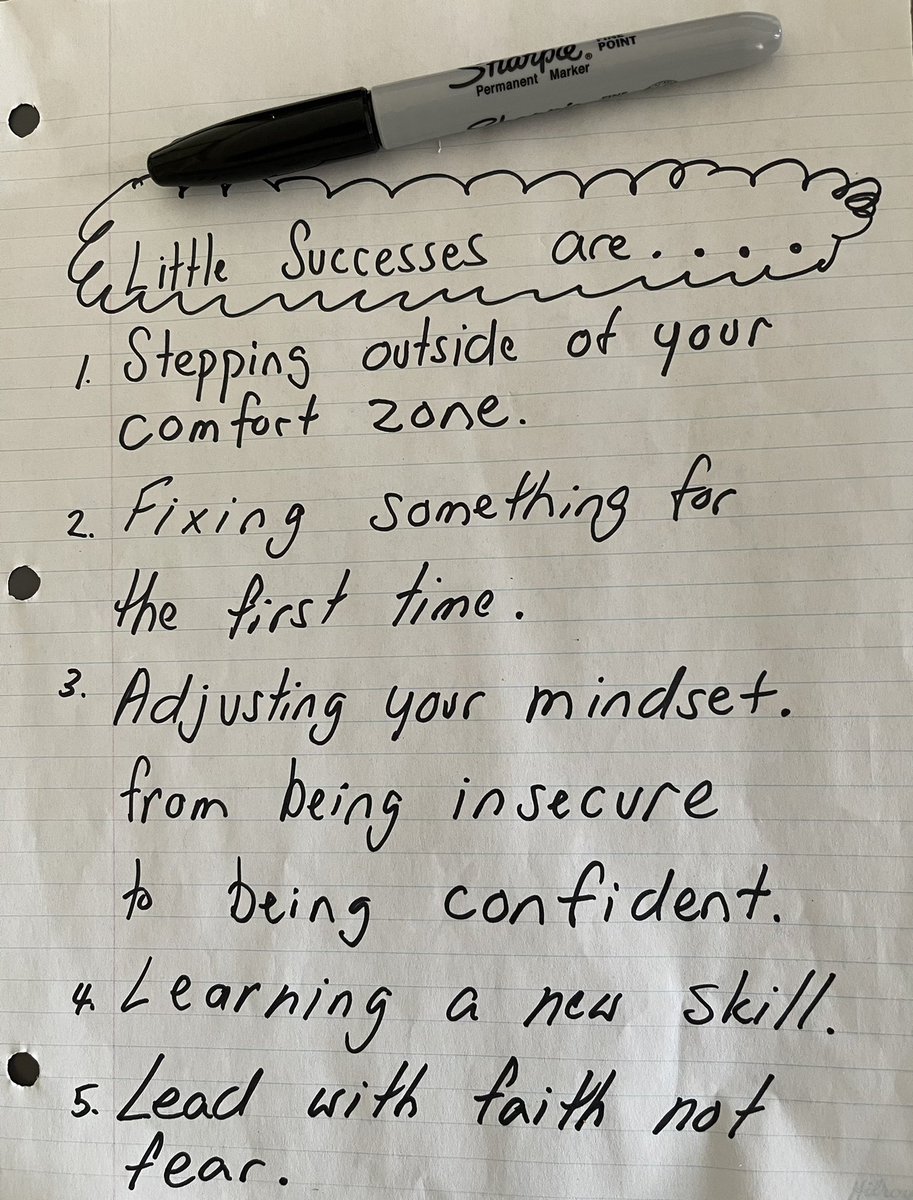 Sharpie® FINE POINT
Permanent Marker
Little Successes are.....
1. Stepping outside of your
comfort zone.
2. Fixing something for
the first time.
3. Adjusting your mindset.
from being insecure
to being confident.
4. Learning a new skill.
5. Lead with faith not
fear.